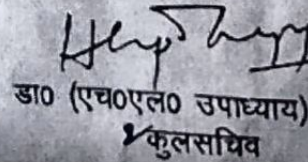 डा० (एच०एल० उपाध्याय)
कुलसचिव